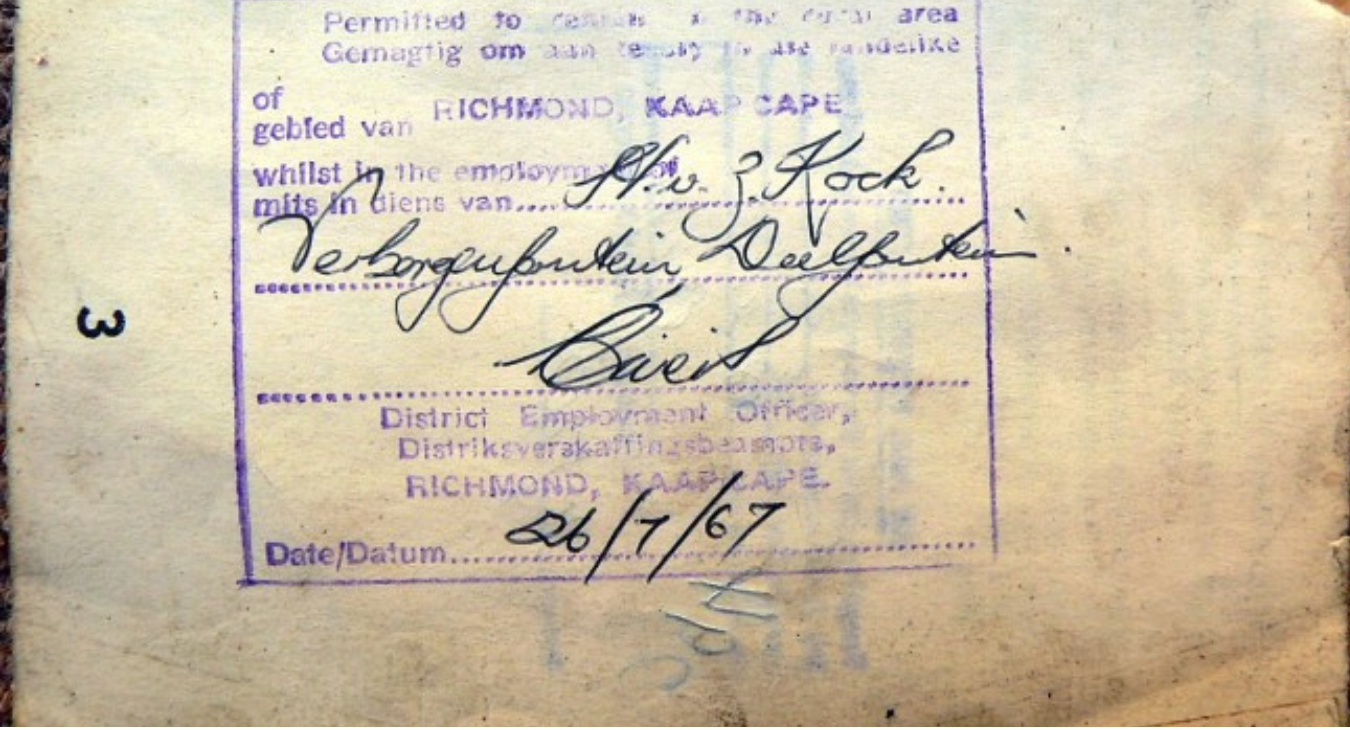 Permitted to remain in the rural area
Gemagtig om aan te bly in die landelike
of
gebied van RICHMOND, KAAP CAPE
whilst in the employment of
mits in diens van.... H. v. Z. Kock.
Verborgenfontein Deelfontein.
District Employment Officer,
Distriksverskaffingsbeampte,
RICHMOND, KAAP CAPE.
Date/Datum.... 26/7/67
3